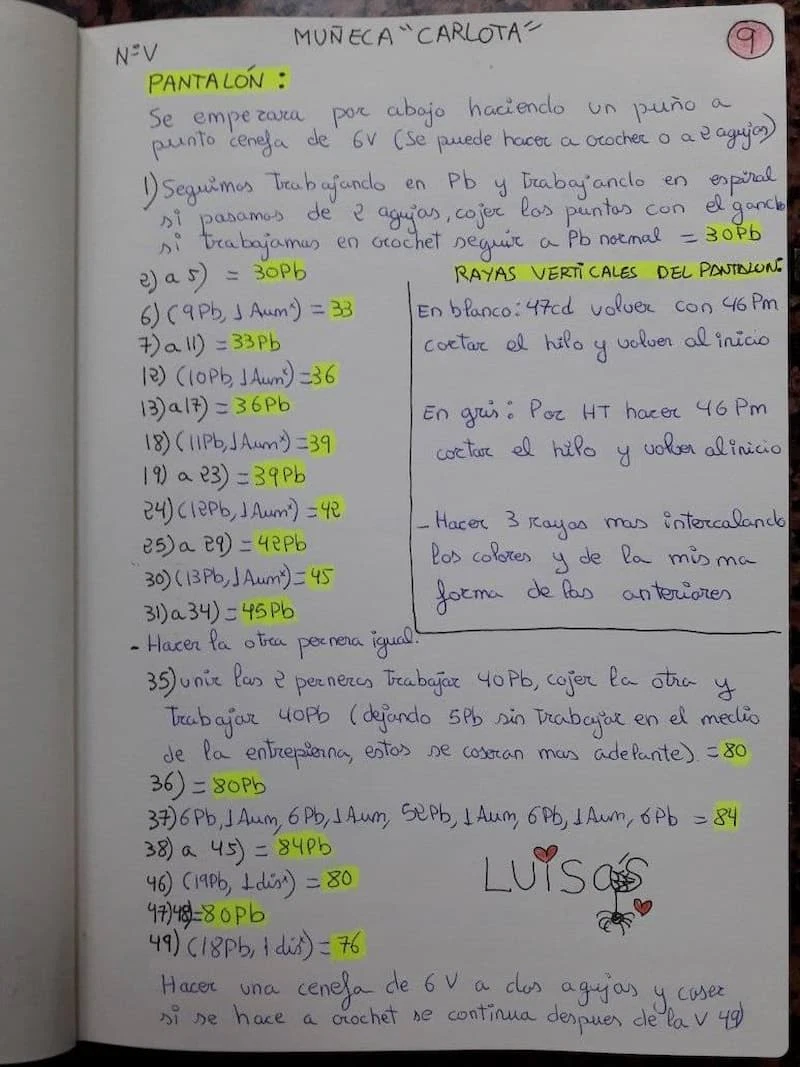 MUÑECA "CARLOTA"
9
Nº V
PANTALÓN:
Se empezara por abajo haciendo un puño a
punto cenefa de 6V (Se puede hacer a crochet o a 2 agujas)
1) Seguimos trabajando en Pb y trabajando en espiral
si pasamos de 2 agujas, cojer los puntos con el gancho
si trabajamos en crochet seguir a Pb normal = 30Pb
2) a 5) = 30Pb
6) (9Pb, 1 Aumˣ) = 33
7) a 11) = 33Pb
12) (10Pb, 1 Aumˣ) = 36
13) a 17) = 36Pb
18) (11Pb, 1 Aumˣ) = 39
19) a 23) = 39Pb
24) (12Pb, 1 Aumˣ) = 42
25) a 29) = 42Pb
30) (13Pb, 1 Aumˣ) = 45
31) a 34) = 45Pb
- Hacer la otra pernera igual.
RAYAS VERTICALES DEL PANTALON:
En blanco: 47cd volver con 46 Pm
cortar el hilo y volver al inicio
En gris: Por HT hacer 46 Pm
cortar el hilo y volver al inicio
- Hacer 3 rayas mas intercalando
los colores y de la misma
forma de las anteriores
35) unir las 2 perneras trabajar 40Pb, cojer la otra y
trabajar 40Pb (dejando 5Pb sin trabajar en el medio
de la entrepierna, estos se coseran mas adelante) = 80
36) = 80Pb
37) 6Pb, 1 Aum, 6Pb, 1 Aum, 52Pb, 1 Aum, 6Pb, 1 Aum, 6Pb = 84
38) a 45) = 84Pb
46) (19Pb, 1 disˣ) = 80
47) 48) = 80Pb
49) (18Pb, 1 disˣ) = 76
LUISAS
Hacer una cenefa de 6 V a dos agujas y coser
si se hace a crochet se continua despues de la V 49)